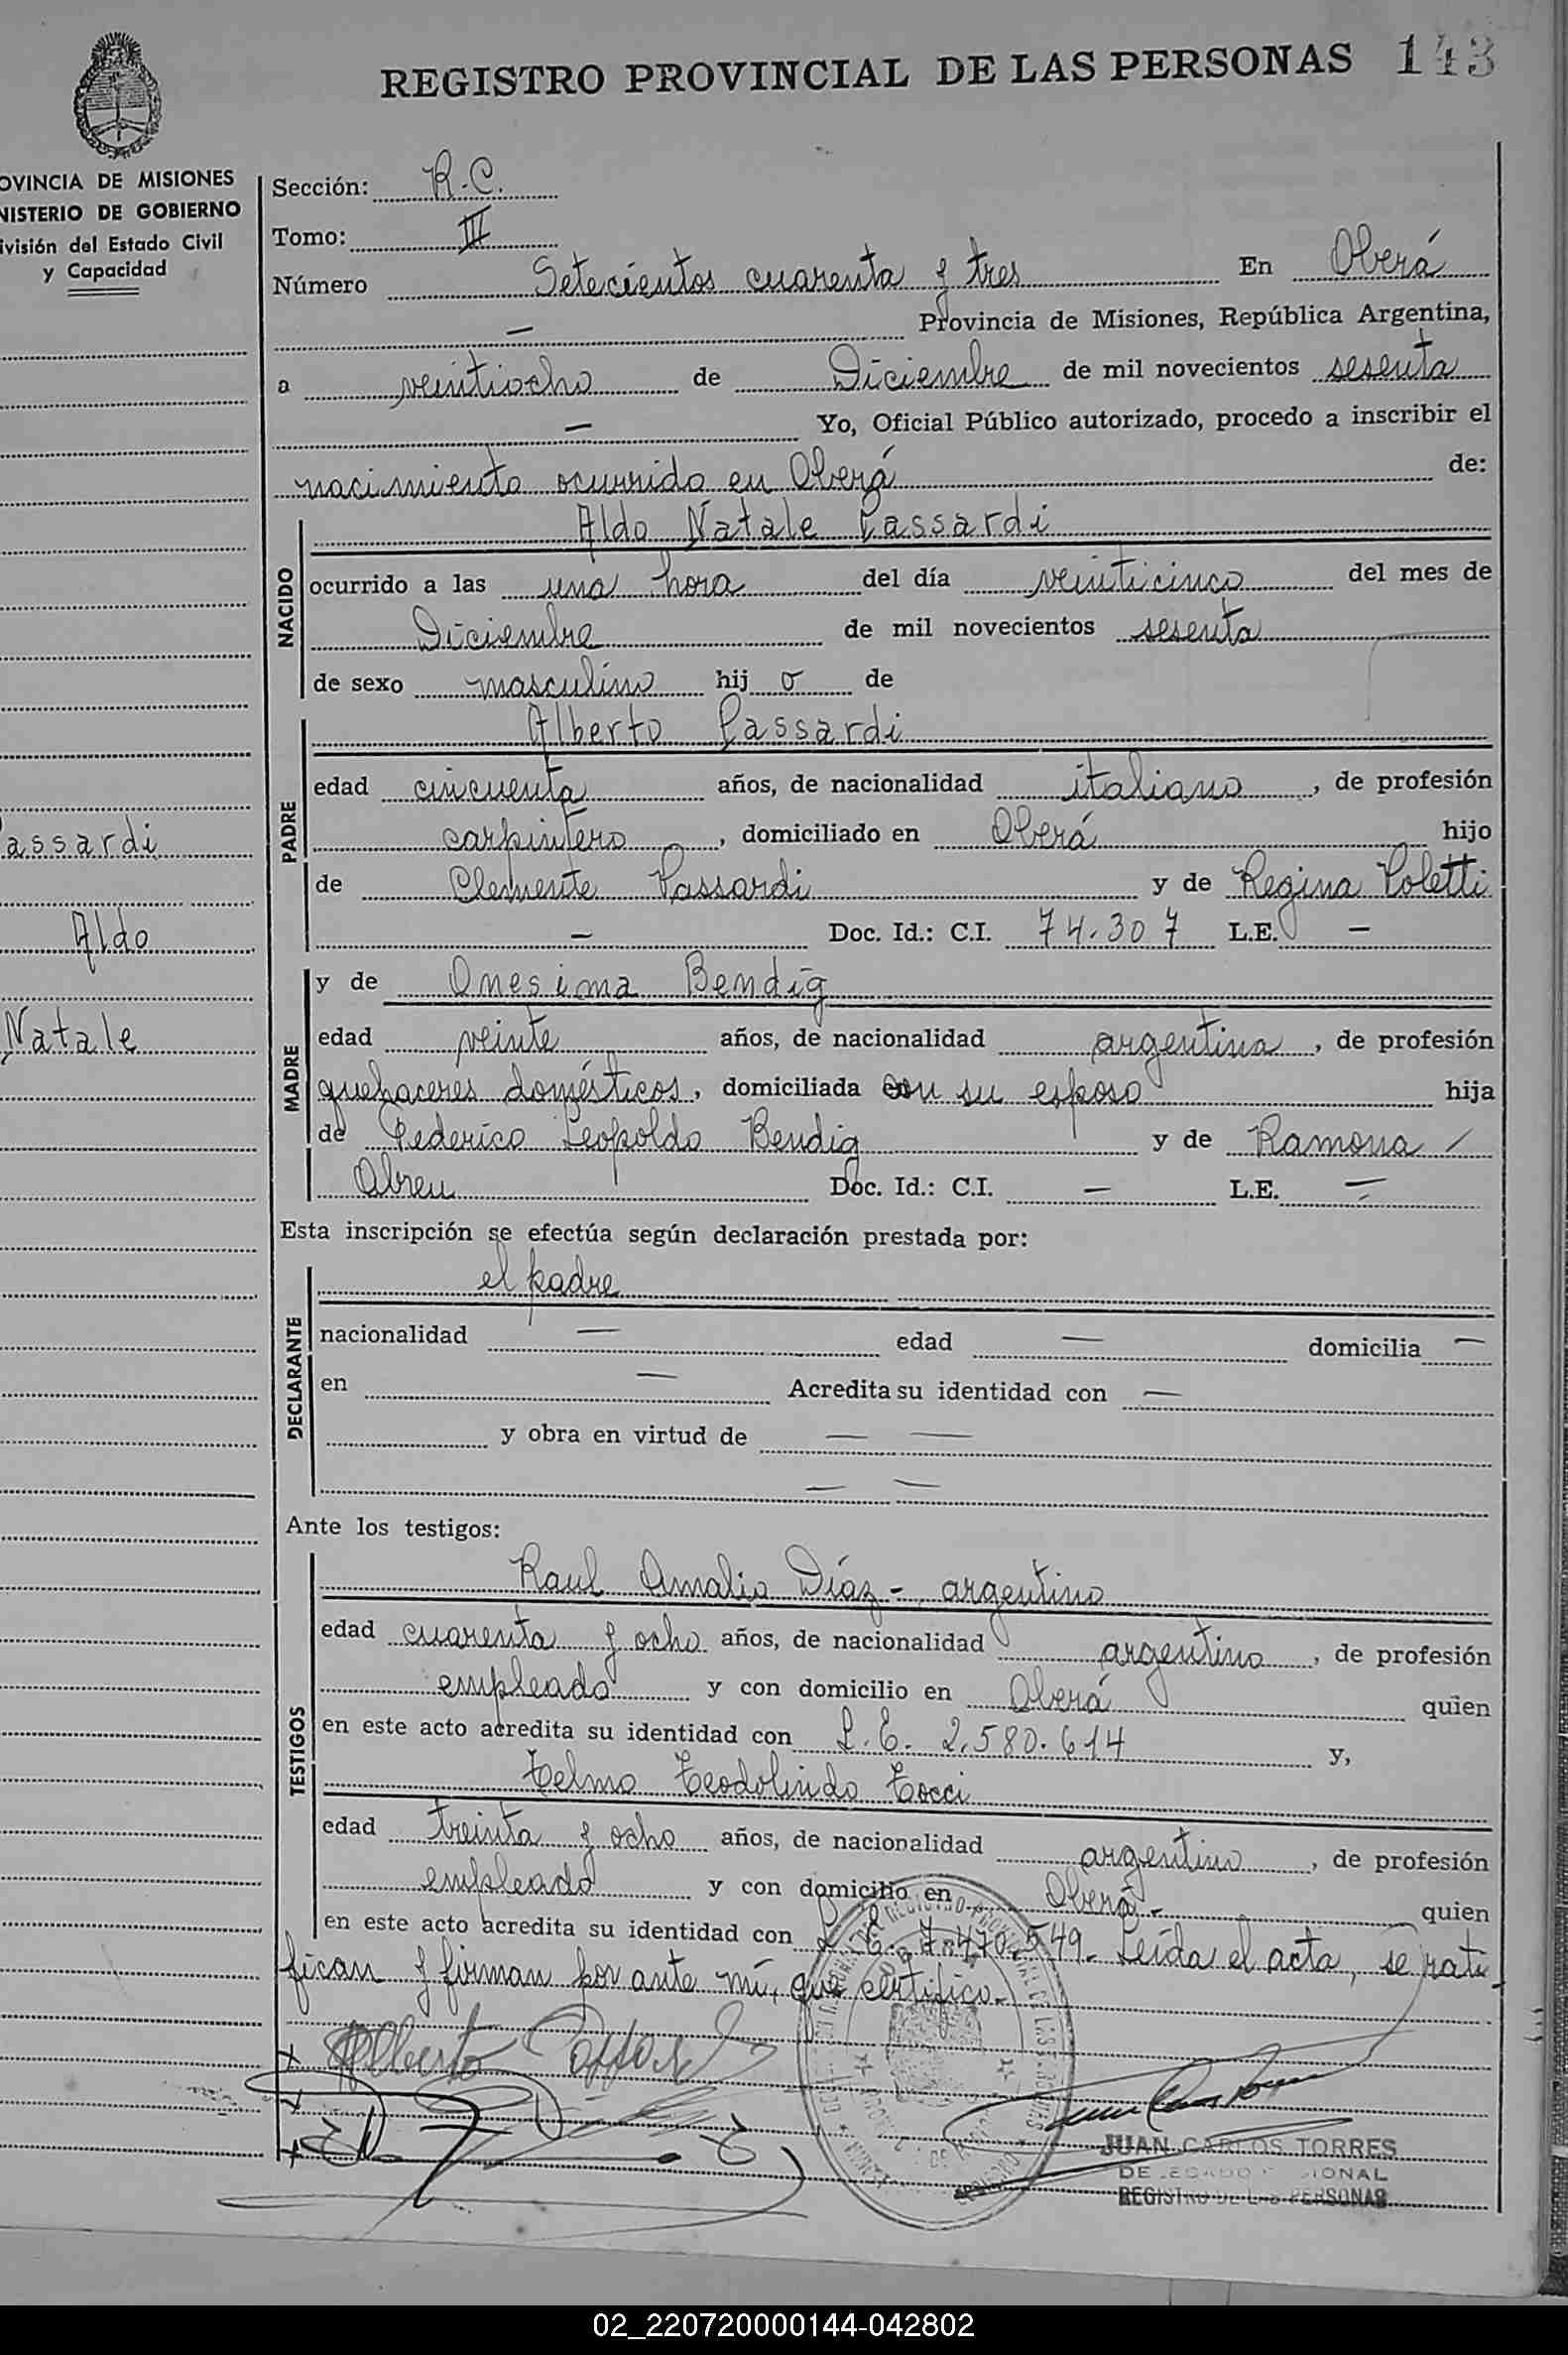 REGISTRO PROVINCIAL DE LAS PERSONAS 143
OVINCIA DE MISIONES
NISTERIO DE GOBIERNO
ivisión del Estado Civil
y Capacidad
Sección: R.C.
Tomo: III
Número Setecientos cuarenta y tres En Oberá
— Provincia de Misiones, República Argentina,
a veintiocho de Diciembre de mil novecientos sesenta
— Yo, Oficial Público autorizado, procedo a inscribir el
nacimiento ocurrido en Oberá de:
NACIDO
Aldo Natale Passardi
ocurrido a las una hora del día veinticinco del mes de
Diciembre de mil novecientos sesenta
de sexo masculino hij o de
PADRE
Alberto Passardi
edad cincuenta años, de nacionalidad italiano, de profesión
carpintero, domiciliado en Oberá hijo
de Clemente Passardi y de Regina Poletti
— Doc. Id.: C.I. 74.307 L.E. —
assardi
Aldo
Natale
MADRE
y de Onesima Bendig
edad veinte años, de nacionalidad argentina, de profesión
quehaceres domésticos, domiciliada con su esposo hija
de Federico Leopoldo Bendig y de Ramona /
Abreu Doc. Id.: C.I. — L.E. —
Esta inscripción se efectúa según declaración prestada por:
DECLARANTE
el padre
nacionalidad — edad — domicilia —
en — Acredita su identidad con —
y obra en virtud de — —
— —
Ante los testigos:
TESTIGOS
Raul Amalio Díaz - argentino
edad cuarenta y ocho años, de nacionalidad argentino, de profesión
empleado y con domicilio en Oberá quien
en este acto acredita su identidad con L.E. 2.580.614 y,
Telmo Teodolindo Tocci
edad treinta y ocho años, de nacionalidad argentino, de profesión
empleado y con domicilio en Oberá - quien
en este acto acredita su identidad con L.E. 7.470.549.- Leída el acta, se rati-
fican y firman por ante mí, que certifico.-
Alberto Passardi
JUAN CARLOS TORRES
REGISTRO DE LAS PERSONAS
02_220720000144-042802